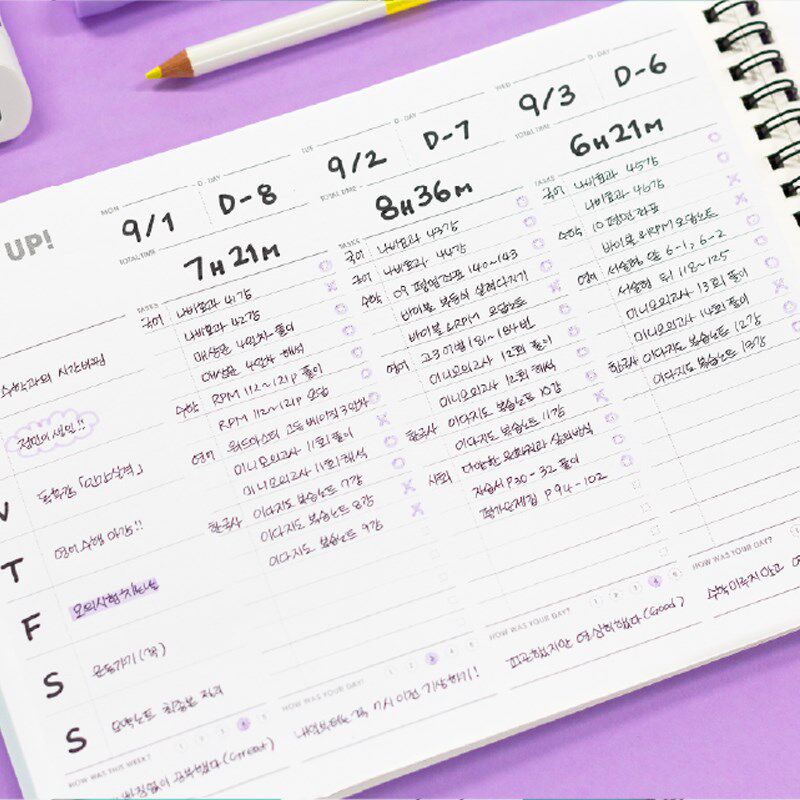 UP!
수학과외 시간바뀜
정민이 생일!!
독후감 「인간실격」
영어 수행 마감!!
T
F
운동가기 (꼭)
S
오답노트 최종본 정리
S
HOW WAS THIS WEEK?
1 2 3 4 5
공부했다 (Great)
MON
D-DAY
9/1
D-8
TOTAL TIME
7H 21M
TASKS
국어 나비효과 41강
나비효과 42강
매삼문 4일차 풀이
매삼문 4일차 해석
수학 RPM 112~121p 풀이
RPM 112~121p 오답
영어 워드마스터 고등베이직 3일차
미니모의고사 11회 풀이
미니모의고사 11회 해석
한국사 이다지도 복습노트 7강
이다지도 복습노트 8강
이다지도 복습노트 9강
HOW WAS YOUR DAY?
1 2 3 4 5
내일부터는 꼭 7시 이전 기상하기!
TUE
D-DAY
9/2
D-7
TOTAL TIME
8H 36M
TASKS
국어 나비효과 43강
국어 나비효과 44강
수학 09 평면좌표 140~143
바이블 복습
바이블 &RPM 오답노트
영어 고3 기출 181~184번
미니모의고사 12회 풀이
미니모의고사 12회 해석
한국사 이다지도 복습노트 10강
이다지도 복습노트 11강
사회 다양한
자습서 P30-32 풀이
평가문제집 P94-102
HOW WAS YOUR DAY?
1 2 3 4 5
피곤했지만 열심히했다 (Good)
WED
D-DAY
9/3
D-6
TOTAL TIME
6H 21M
TASKS
국어 나비효과 45강
나비효과 46강
수학 10 평면좌표
바이블 &RPM 오답노트
영어 서술형 앞 6-1, 6-2
서술형 뒤 118~125
미니모의고사 13회 풀이
미니모의고사 14회 풀이
한국사 이다지도 복습노트 12강
이다지도 복습노트 13강
HOW WAS YOUR DAY?
수학 미루지 않고